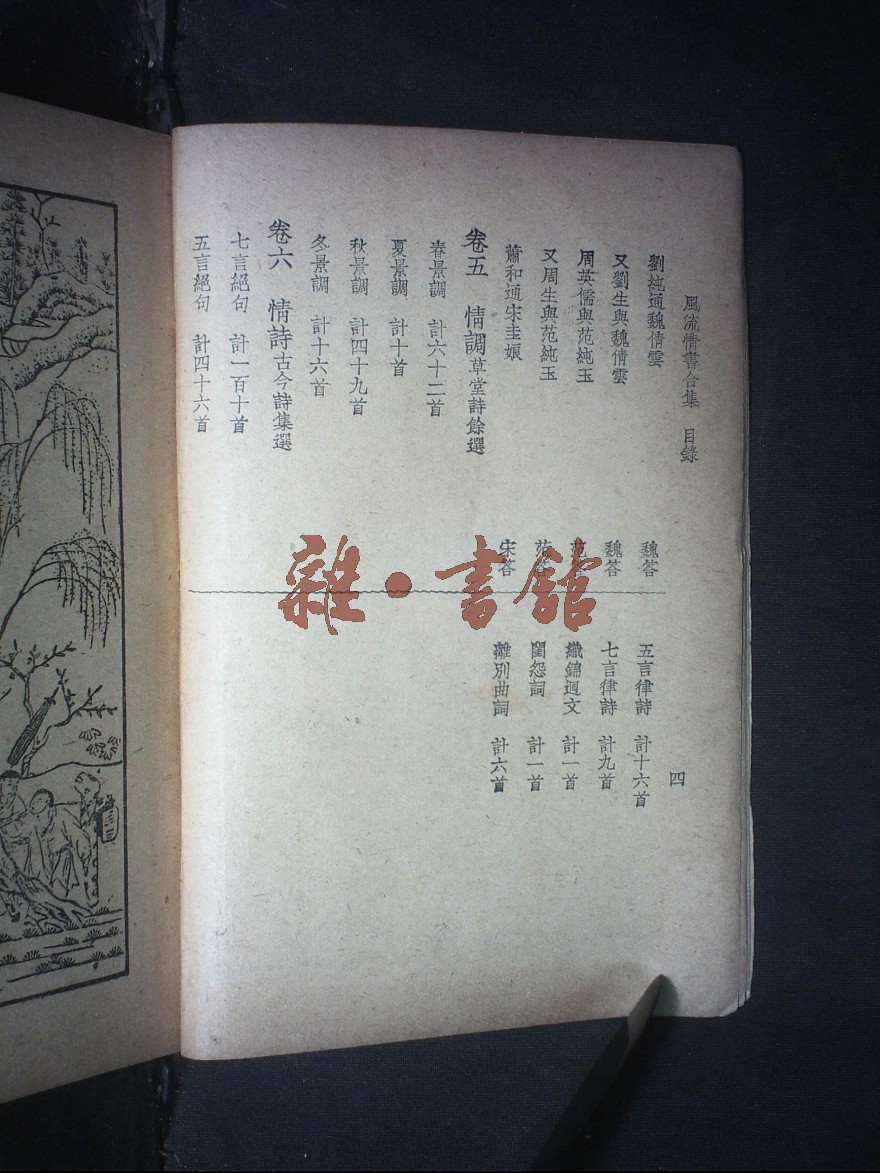 風流情書合集　目錄
四
劉純通魏倩雲　魏答
又劉生與魏倩雲　魏答
周英儒與范純玉　范答
又周生與范純玉　范答
蕭和通宋圭娘　宋答
卷五　情調草堂詩餘選
春景調　計六十二首
夏景調　計十首
秋景調　計四十九首
冬景調　計十六首
卷六　情詩古今詩集選
七言絕句　計一百十首
五言絕句　計四十六首
五言律詩　計十六首
七言律詩　計九首
織錦迴文　計一首
閨怨詞　計一首
離別曲詞　計六首
雜·書館